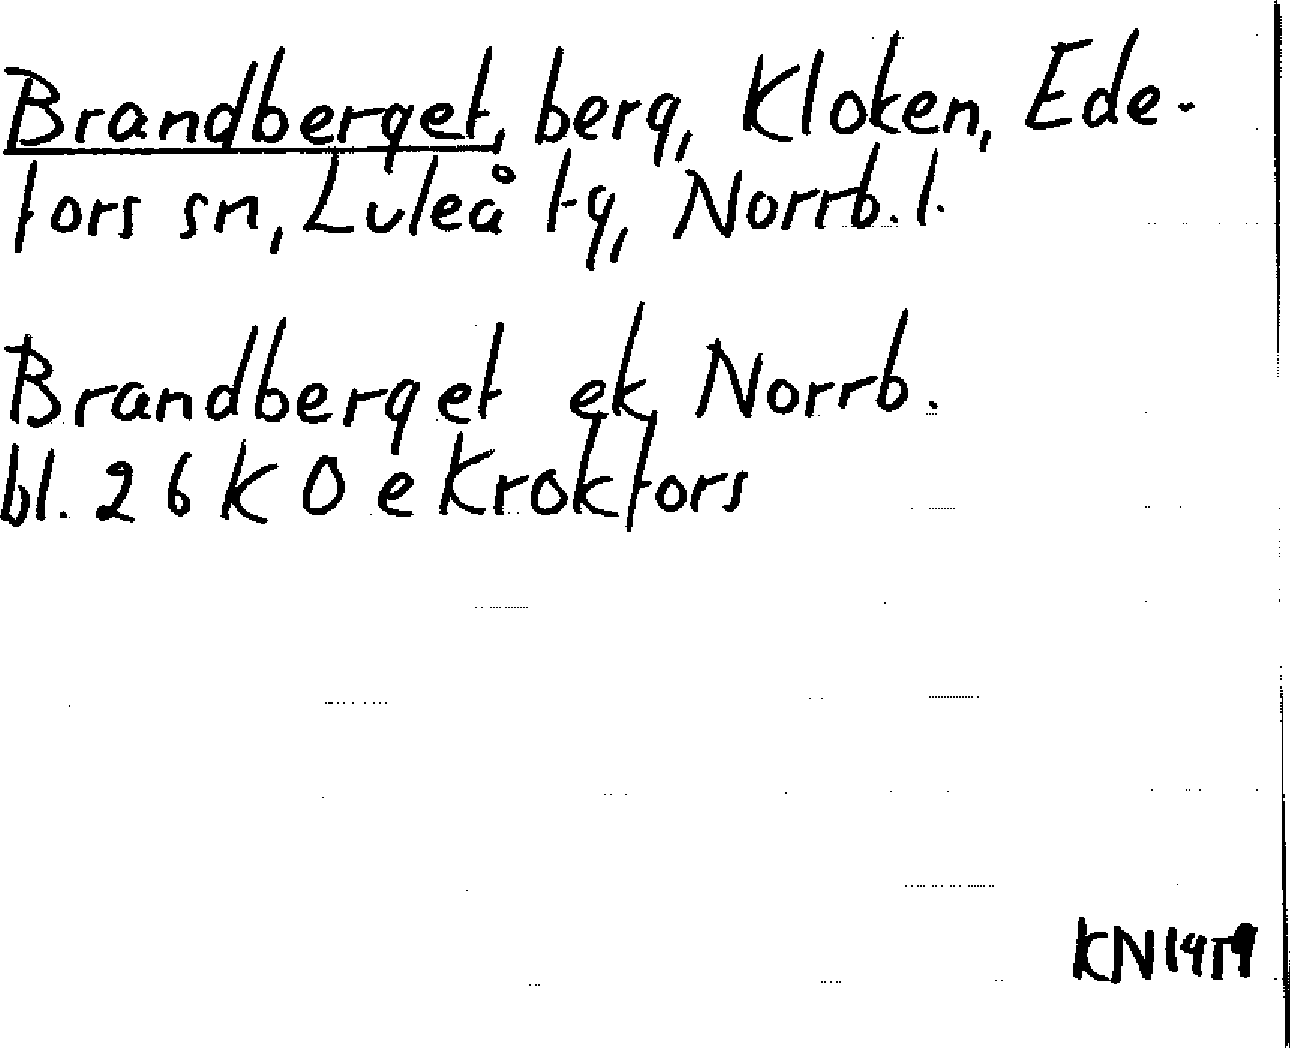 Brandberget, berg, Kloken, Ede-
fors sn, Luleå tg, Norrb. l.
Brandberget ek Norrb.
bl. 26 K 0 e Krokfors